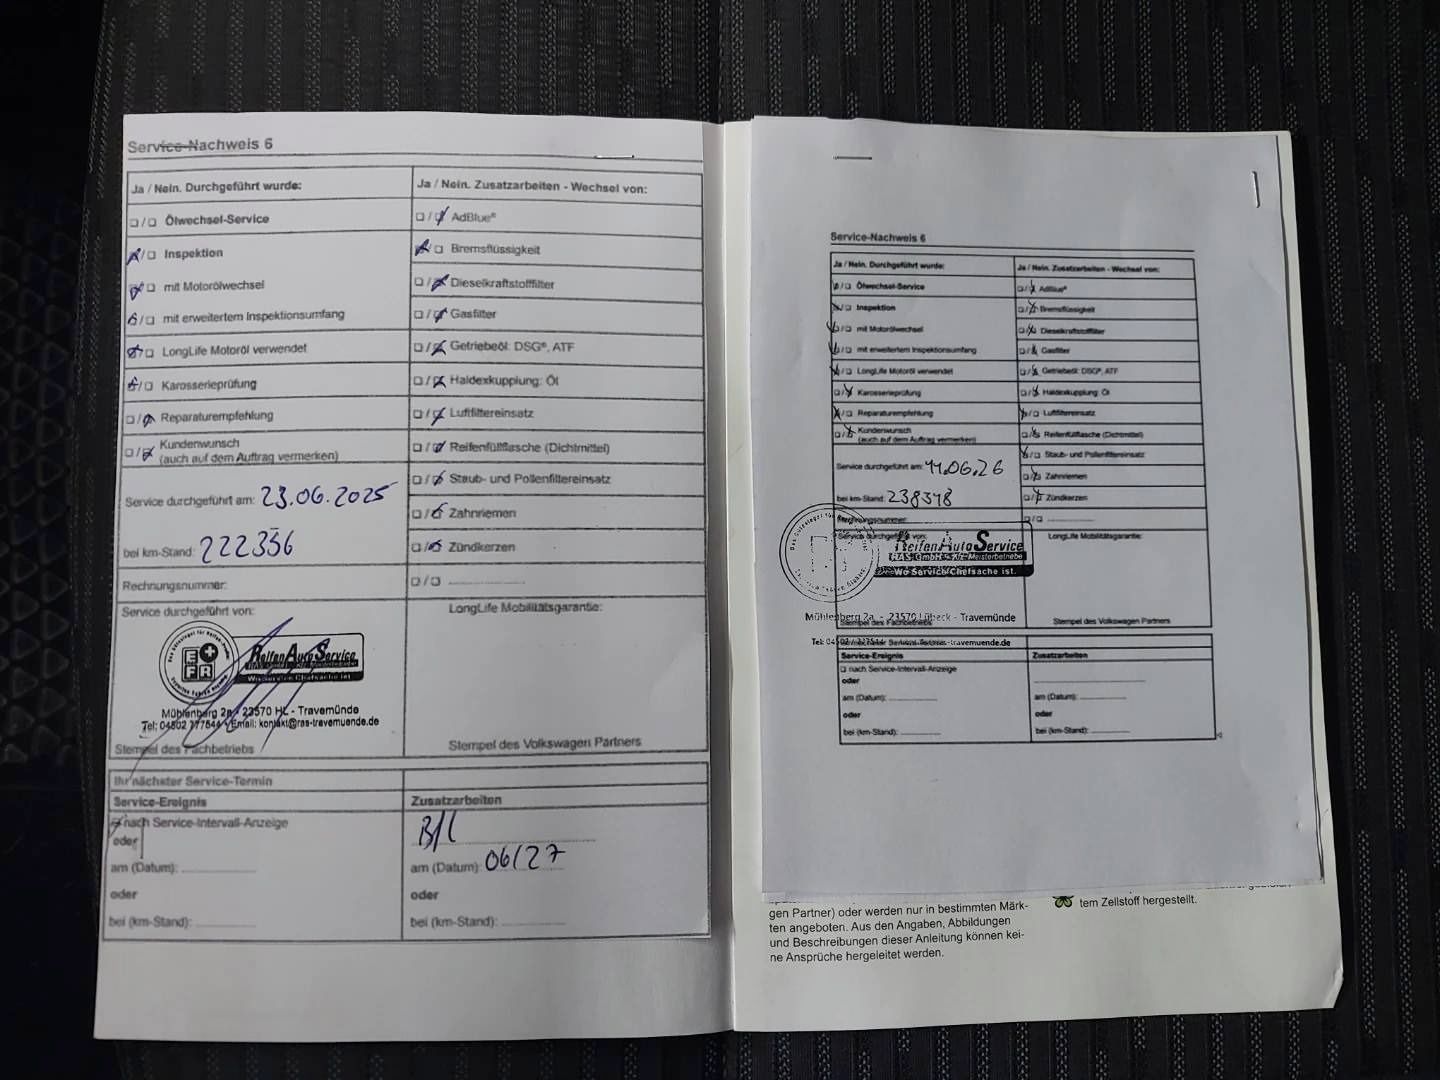 Service-Nachweis 6
Ja / Nein. Durchgeführt wurde:
Ölwechsel-Service
Inspektion
mit Motorölwechsel
mit erweitertem Inspektionsumfang
LongLife Motoröl verwendet
Karosserieprüfung
Reparaturempfehlung
Kundenwunsch
(auch auf dem Auftrag vermerken)
Service durchgeführt am: 23.06.2025
bei km-Stand: 222356
Rechnungsnummer:
Service durchgeführt von:
Reifen Auto Service
RAS GmbH - Kfz-Meisterbetrieb
Wo Service Chefsache ist.
Mühlenberg 2a - 23570 HL - Travemünde
Tel: 04502 777544 - Email: kontakt@ras-travemuende.de
Stempel des Fachbetriebs
Ja / Nein. Zusatzarbeiten - Wechsel von:
AdBlue®
Bremsflüssigkeit
Dieselkraftstofffilter
Gasfilter
Getriebeöl: DSG®, ATF
Haldexkupplung: Öl
Luftfiltereinsatz
Reifenfüllflasche (Dichtmittel)
Staub- und Pollenfiltereinsatz
Zahnriemen
Zündkerzen
LongLife Mobilitätsgarantie:
Stempel des Volkswagen Partners
Ihr nächster Service-Termin
Service-Ereignis
nach Service-Intervall-Anzeige
oder
am (Datum):
oder
bei (km-Stand):
Zusatzarbeiten
am (Datum): 06/27
oder
bei (km-Stand):
Service-Nachweis 6
Ja / Nein. Durchgeführt wurde:
Ölwechsel-Service
Inspektion
mit Motorölwechsel
mit erweitertem Inspektionsumfang
LongLife Motoröl verwendet
Karosserieprüfung
Reparaturempfehlung
Kundenwunsch
(auch auf dem Auftrag vermerken)
Service durchgeführt am: 11.06.26
bei km-Stand: 238348
Rechnungsnummer:
Service durchgeführt von:
Reifen Auto Service
RAS GmbH - Kfz-Meisterbetrieb
Wo Service Chefsache ist.
Mühlenberg 2a - 23570 Lübeck - Travemünde
Stempel des Fachbetriebs
Ja / Nein. Zusatzarbeiten - Wechsel von:
AdBlue®
Bremsflüssigkeit
Dieselkraftstofffilter
Gasfilter
Getriebeöl: DSG®, ATF
Haldexkupplung: Öl
Luftfiltereinsatz
Reifenfüllflasche (Dichtmittel)
Staub- und Pollenfiltereinsatz
Zahnriemen
Zündkerzen
LongLife Mobilitätsgarantie:
Stempel des Volkswagen Partners
Service-Ereignis
nach Service-Intervall-Anzeige
oder
am (Datum):
oder
bei (km-Stand):
Zusatzarbeiten
am (Datum):
oder
bei (km-Stand):
gen Partner) oder werden nur in bestimmten Märk-
ten angeboten. Aus den Angaben, Abbildungen
und Beschreibungen dieser Anleitung können kei-
ne Ansprüche hergeleitet werden.
tem Zellstoff hergestellt.